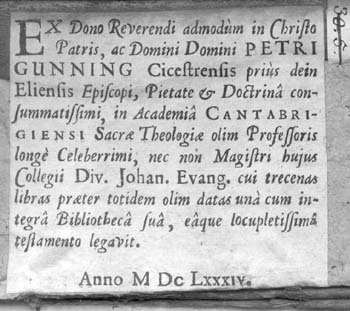 EX Dono Reverendi admodùm in Christo
Patris, ac Domini Domini PETRI
GUNNING Cicestrensis priùs dein
Eliensis Episcopi, Pietate & Doctrinâ con-
summatissimi, in Academiâ CANTABRI-
GIENSI Sacræ Theologiæ olim Professoris
longè Celeberrimi, nec non Magistri hujus
Collegii Div. Johan. Evang. cui trecenas
libras præter totidem olim datas unà cum in-
tegrâ Bibliothecâ suâ, eâque locupletissimâ
testamento legavit.
Anno M Dc Lxxxiv.